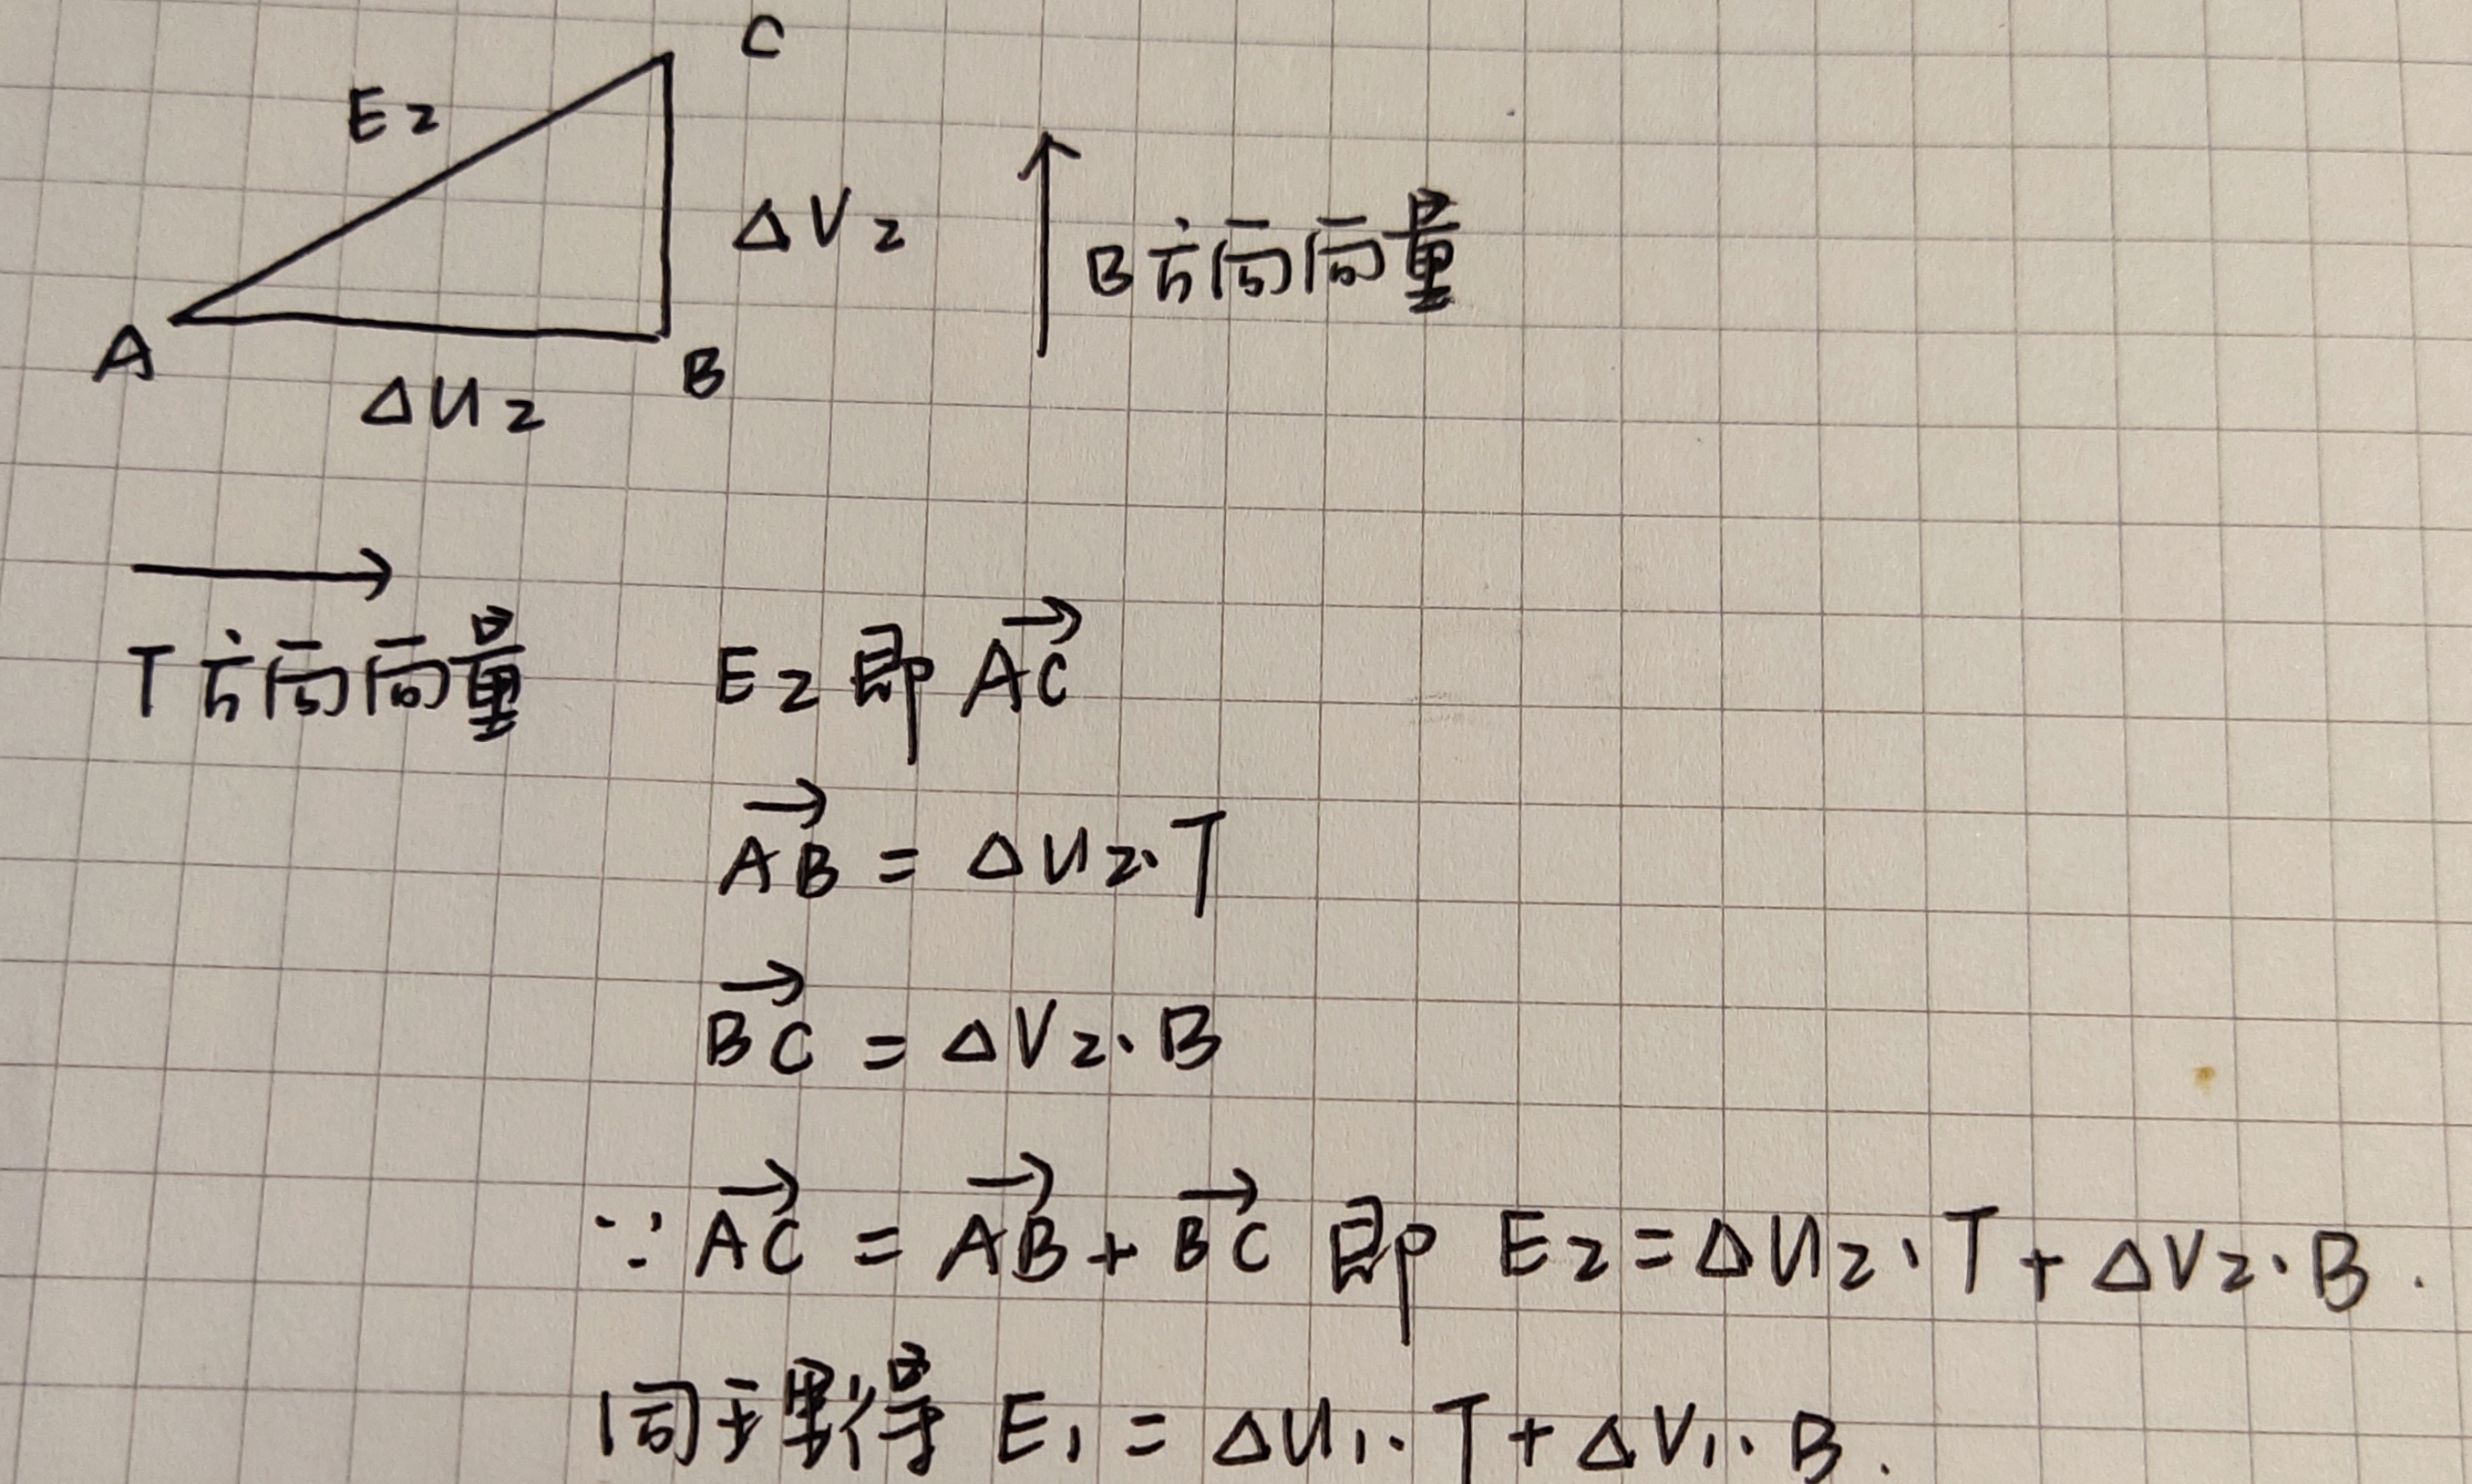 C
E2
ΔV2
B方向向量
A
B
ΔU2
T方向向量
E2即AC⃗
AB⃗ = ΔU2·T
BC⃗ = ΔV2·B
∵ AC⃗ = AB⃗ + BC⃗ 即 E2=ΔU2·T+ΔV2·B.
同理得 E1 = ΔU1·T+ΔV1·B.